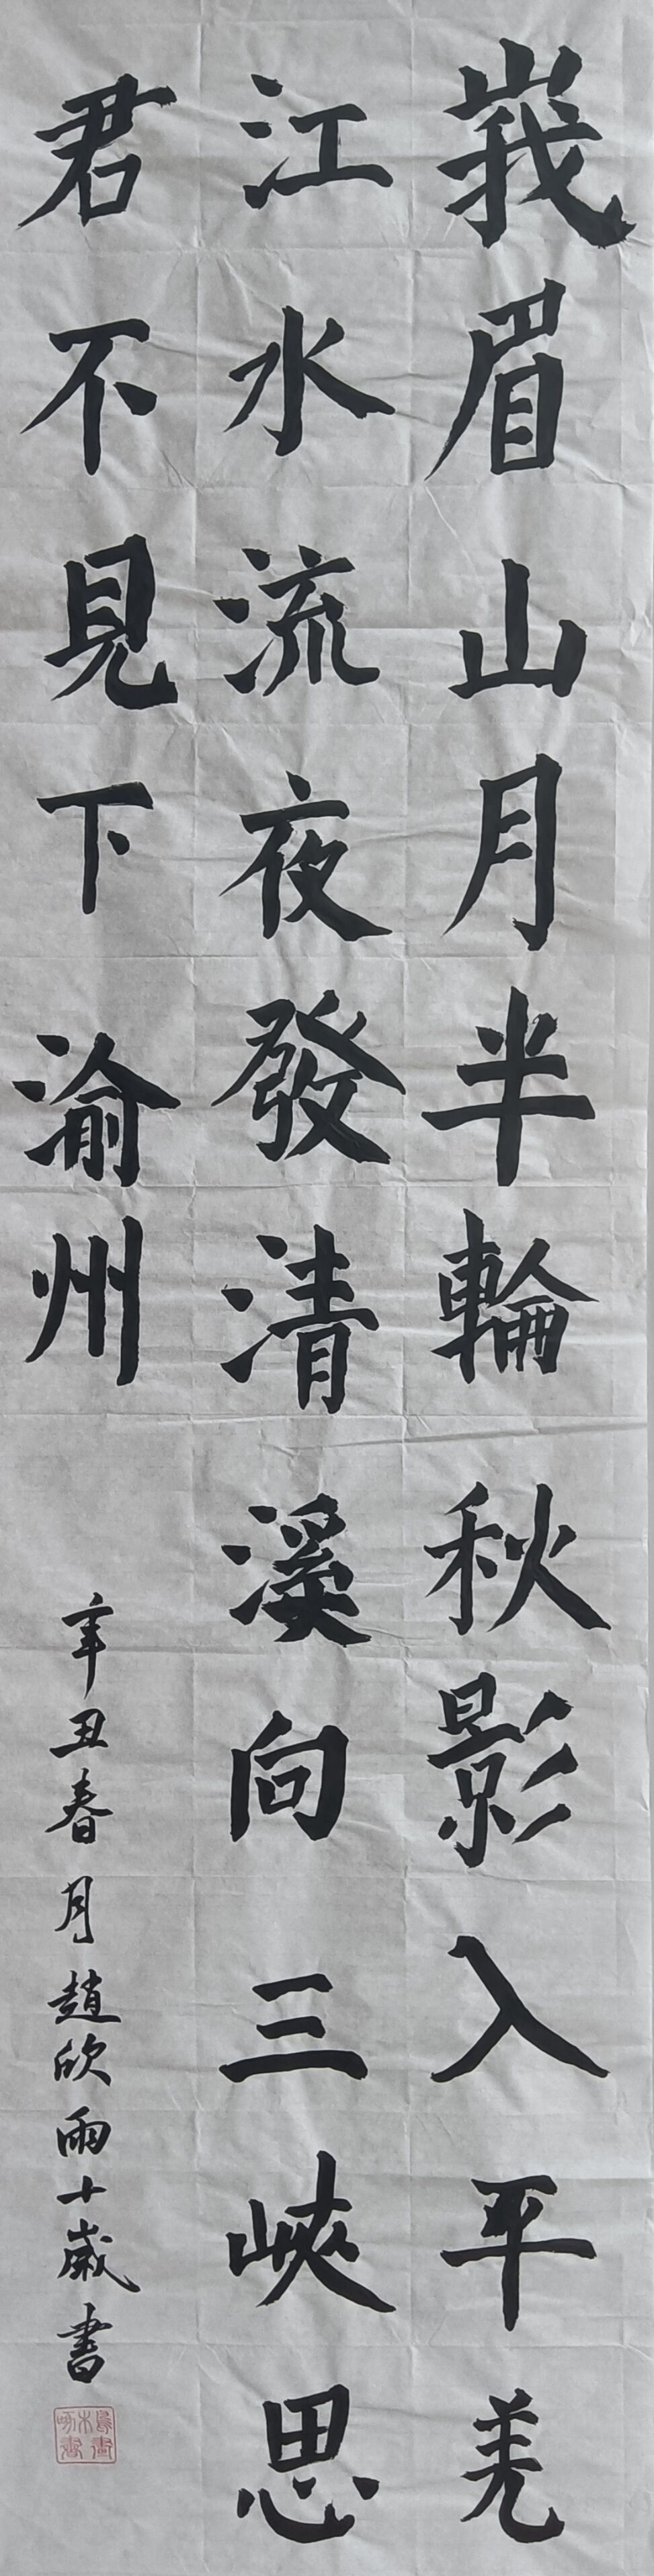 峩眉山月半輪秋影入平羌
江水流夜發清溪向三峽思
君不見下渝州
辛丑春月趙欣雨十歲書